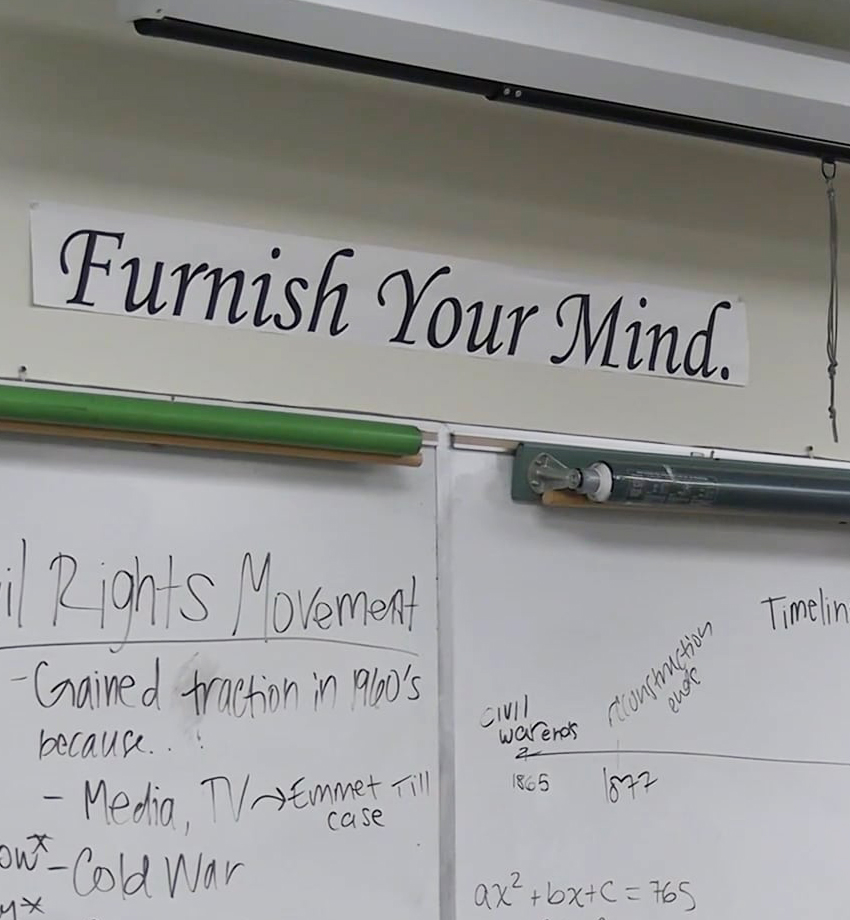 Furnish Your Mind.
il Rights Movement
- Gained traction in 1960's
because...
- Media, TV → Emmet Till
case
ow* - Cold War
Timelin
reconstruction
ends
civil
war ends
1865 1877
ax² + bx + c = 765